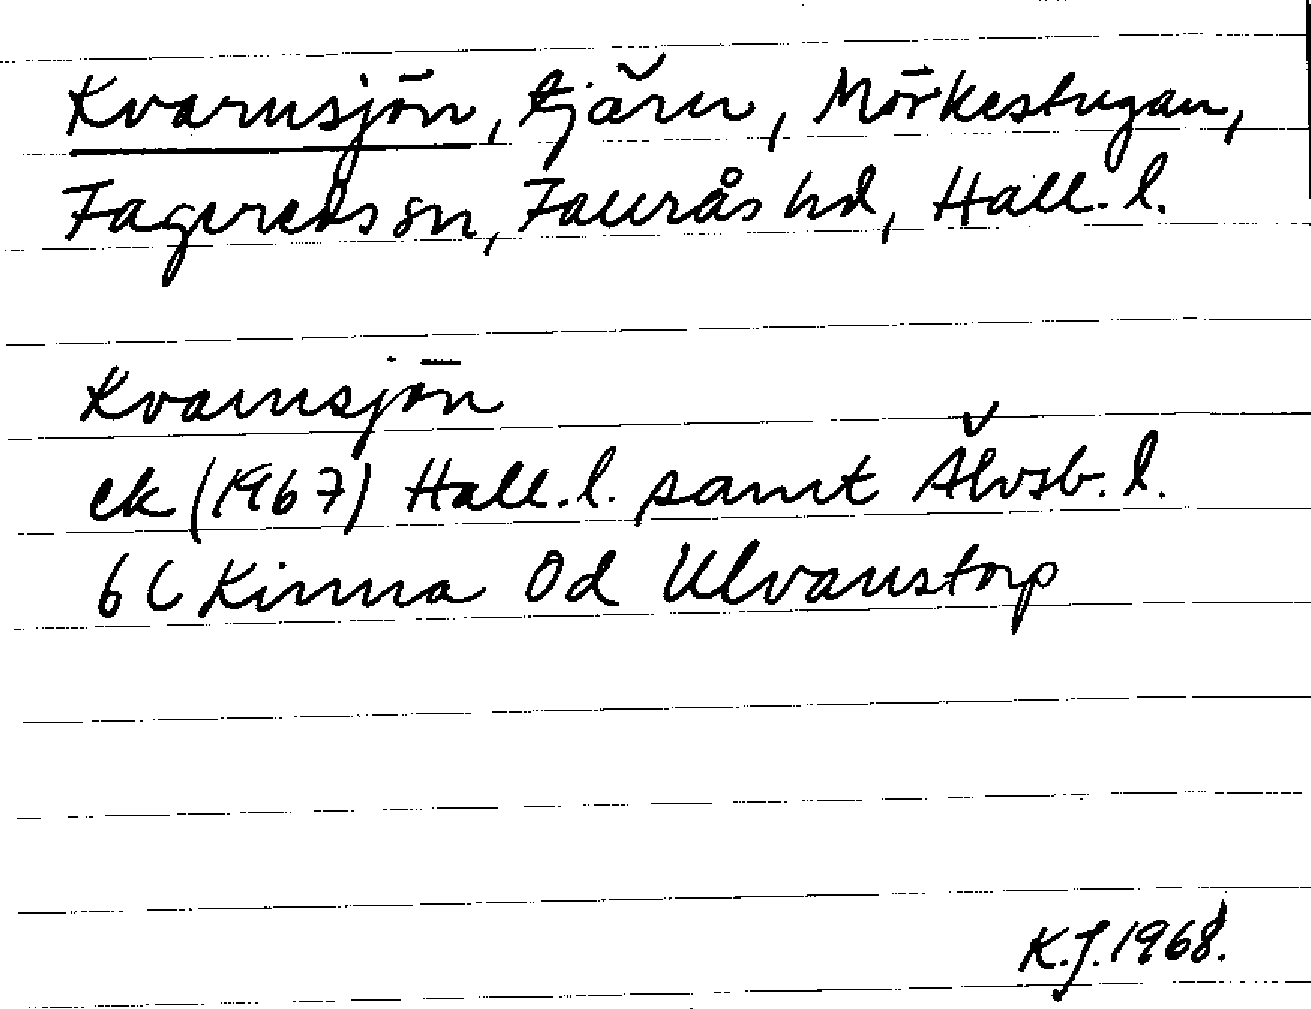 Kvarnsjön, tjärn, Mörkestugan,
Fagereds sn, Faurås hd, Hall. l.
Kvarnsjön
ek (1967) Hall. l. samt Älvsb. l.
6 C Kinna 0d Ulvanstorp
K.J. 1968.